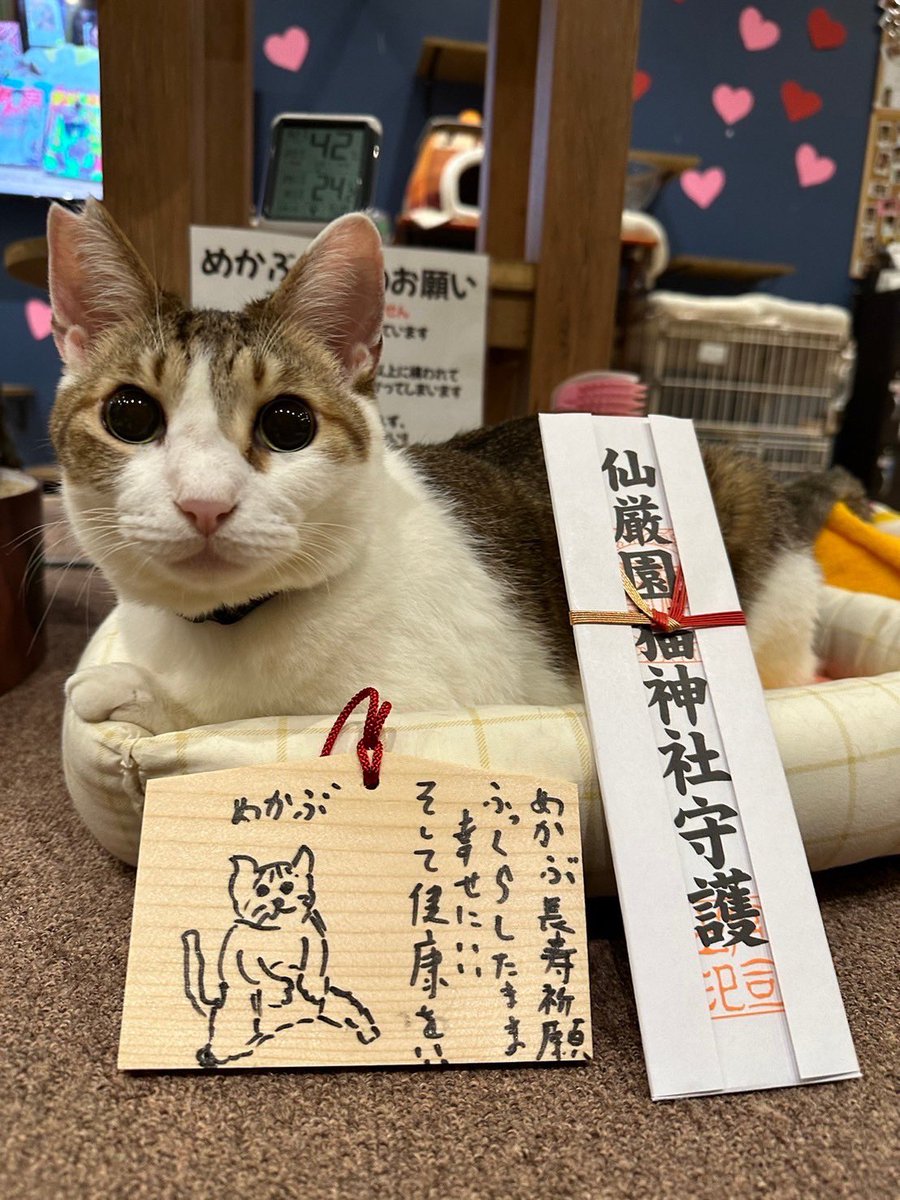 42
24
めかぶ
のお願い
せん
ています
以上に構われて
ってしまいます
仙厳園
猫神社守護
めかぶ
めかぶ長寿祈願
ふっくらしたまま
幸せにいい
そして健康をい